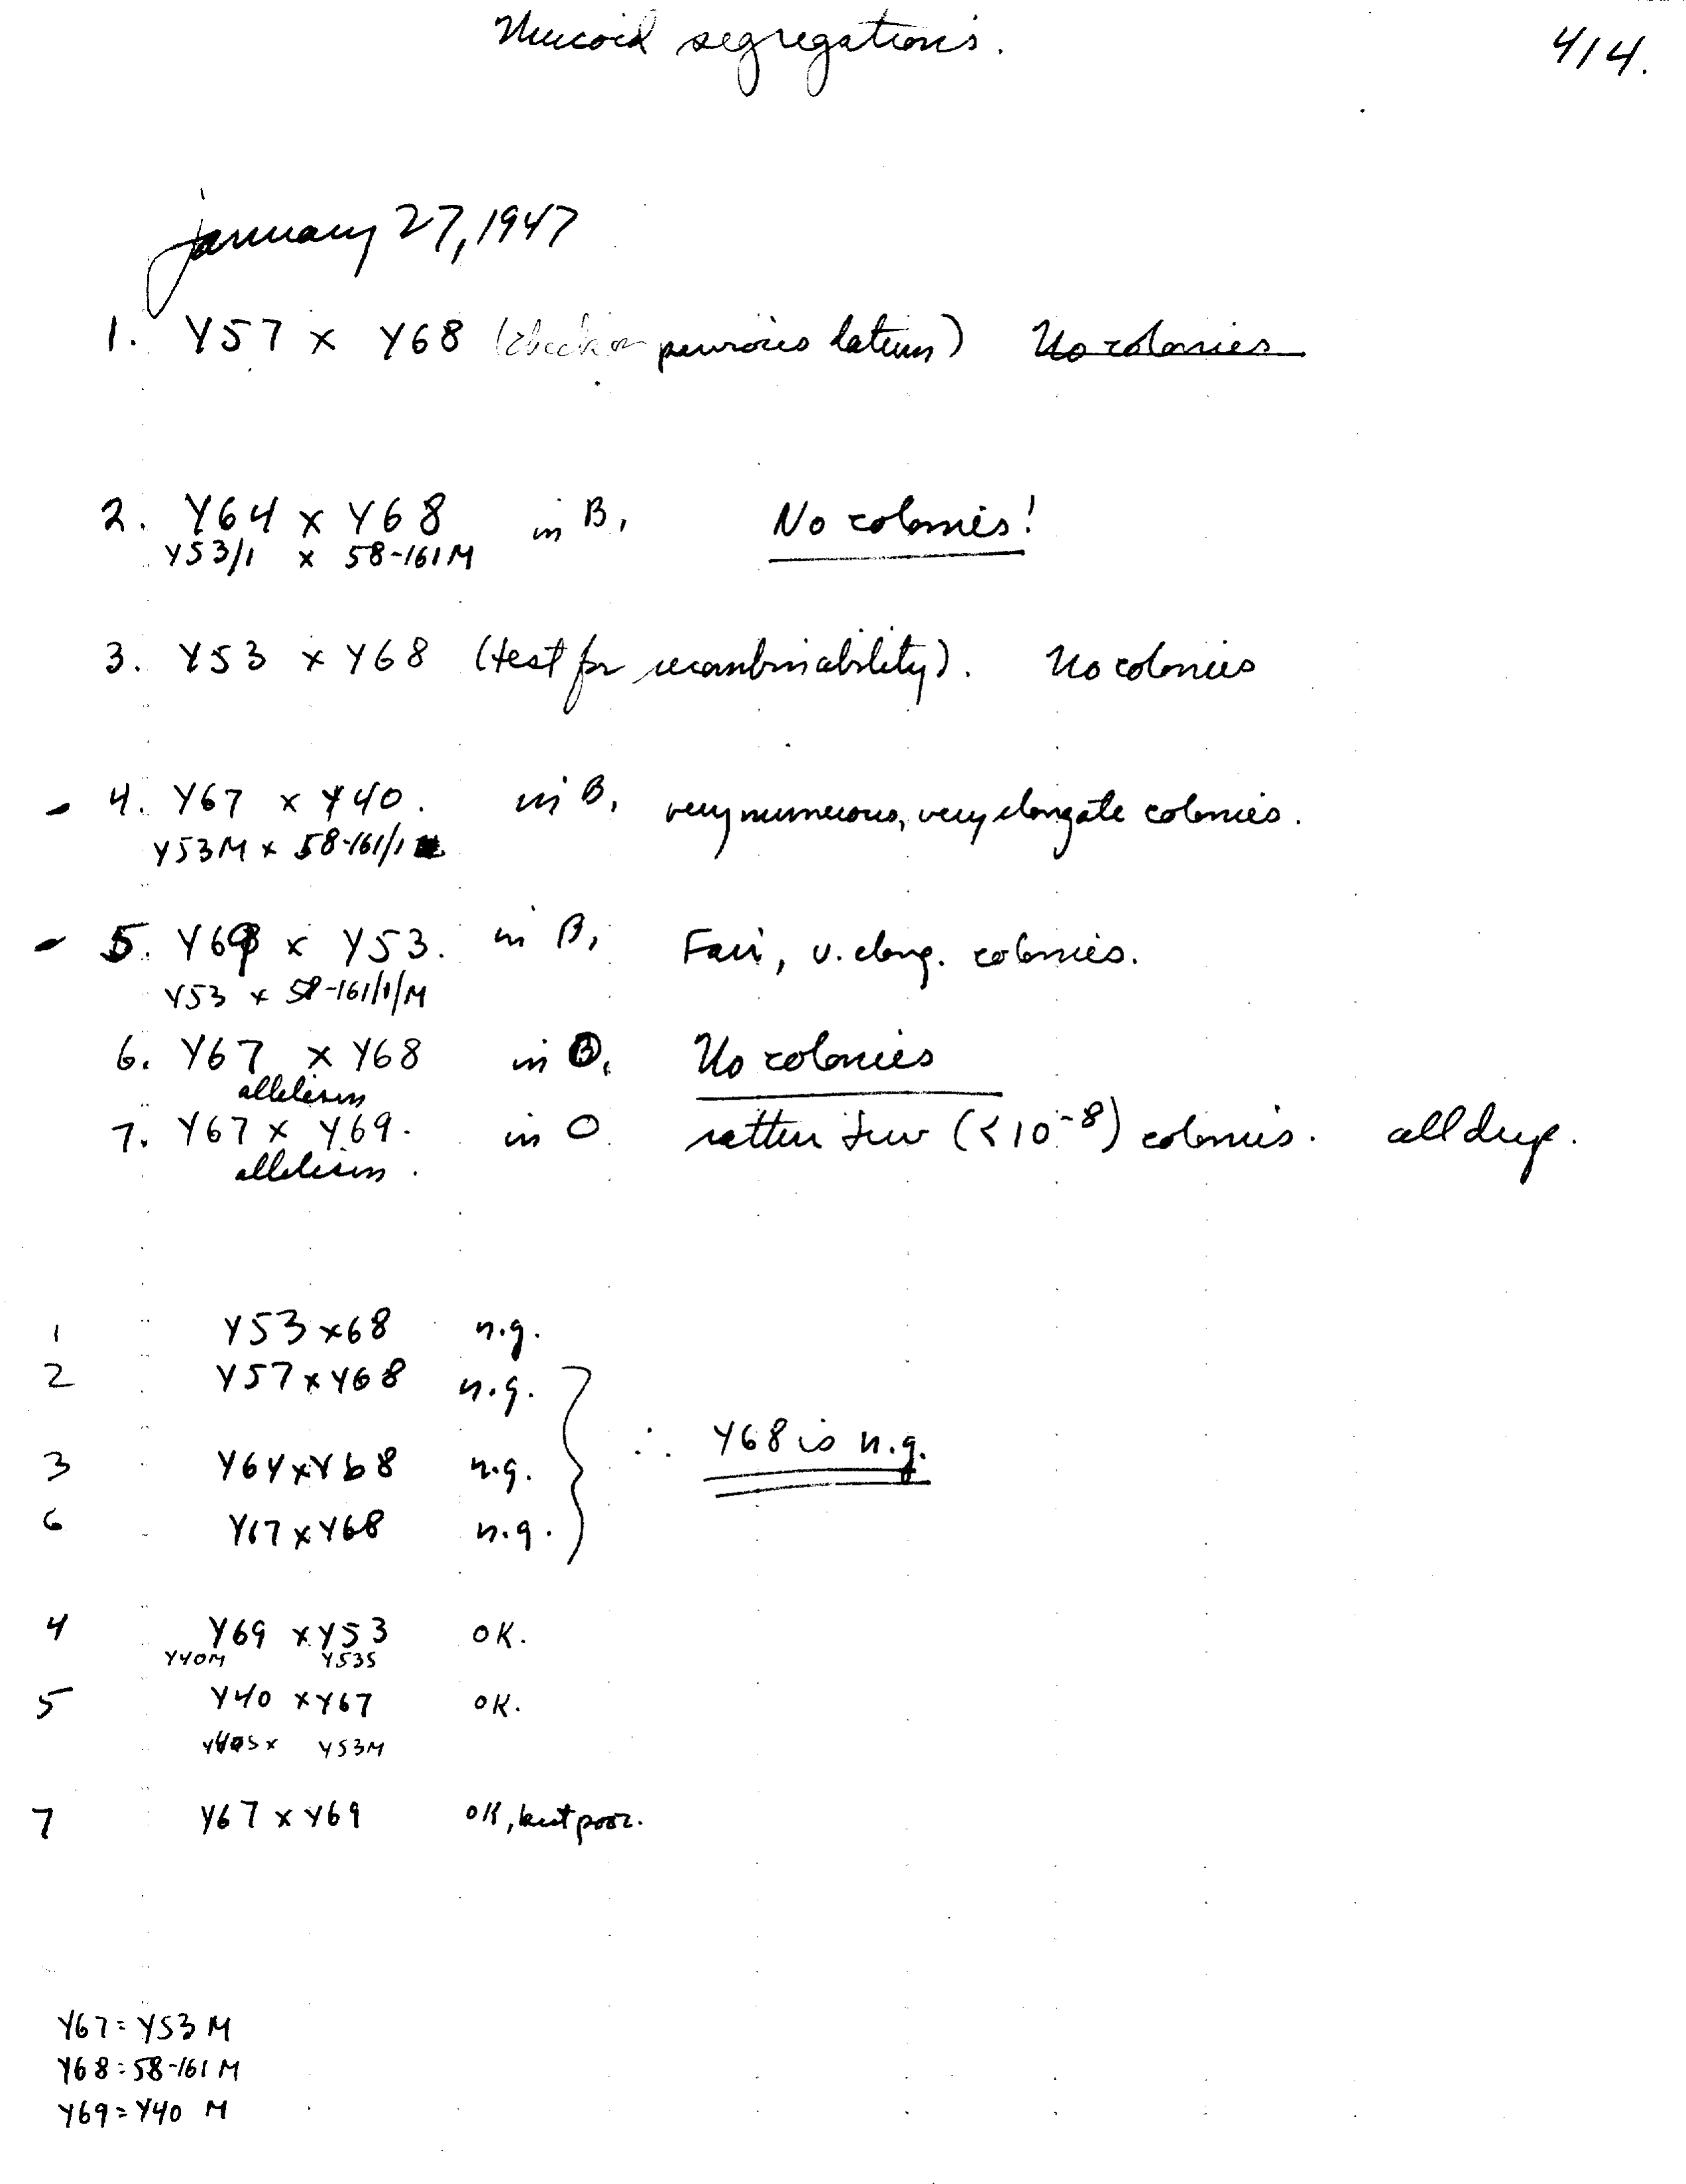 Mucoid segregations.
414.
January 27, 1947
1. Y57 x Y68 (check on previous datum) No colonies
2. Y64 x Y68 in B1 No colonies!
Y53/1 x 58-161M
3. Y53 x Y68 (test for recombinability). No colonies
- 4. Y67 x Y40. in B1 very numerous, very elongate colonies.
Y53M x 58-161/1
- 5. Y69 x Y53. in B1 Fair, v. elong. colonies.
Y53 x 58-161/1/M
6. Y67 x Y68 in B1 No colonies
allelism
7. Y67 x Y69. in O rather few (<10-8) colonies. all deep.
allelism.
1 Y53 x 68 n.g.
2 Y57 x Y68 n.g.
3 Y64 x Y68 n.g. ∴ Y68 is n.g.
6 Y67 x Y68 n.g.
4 Y69 x Y53 OK.
Y40M Y53S
5 Y40 x Y67 OK.
Y40S x Y53M
7 Y67 x Y69 OK, but poor.
Y67 = Y53 M
Y68 = 58-161 M
Y69 = Y40 M